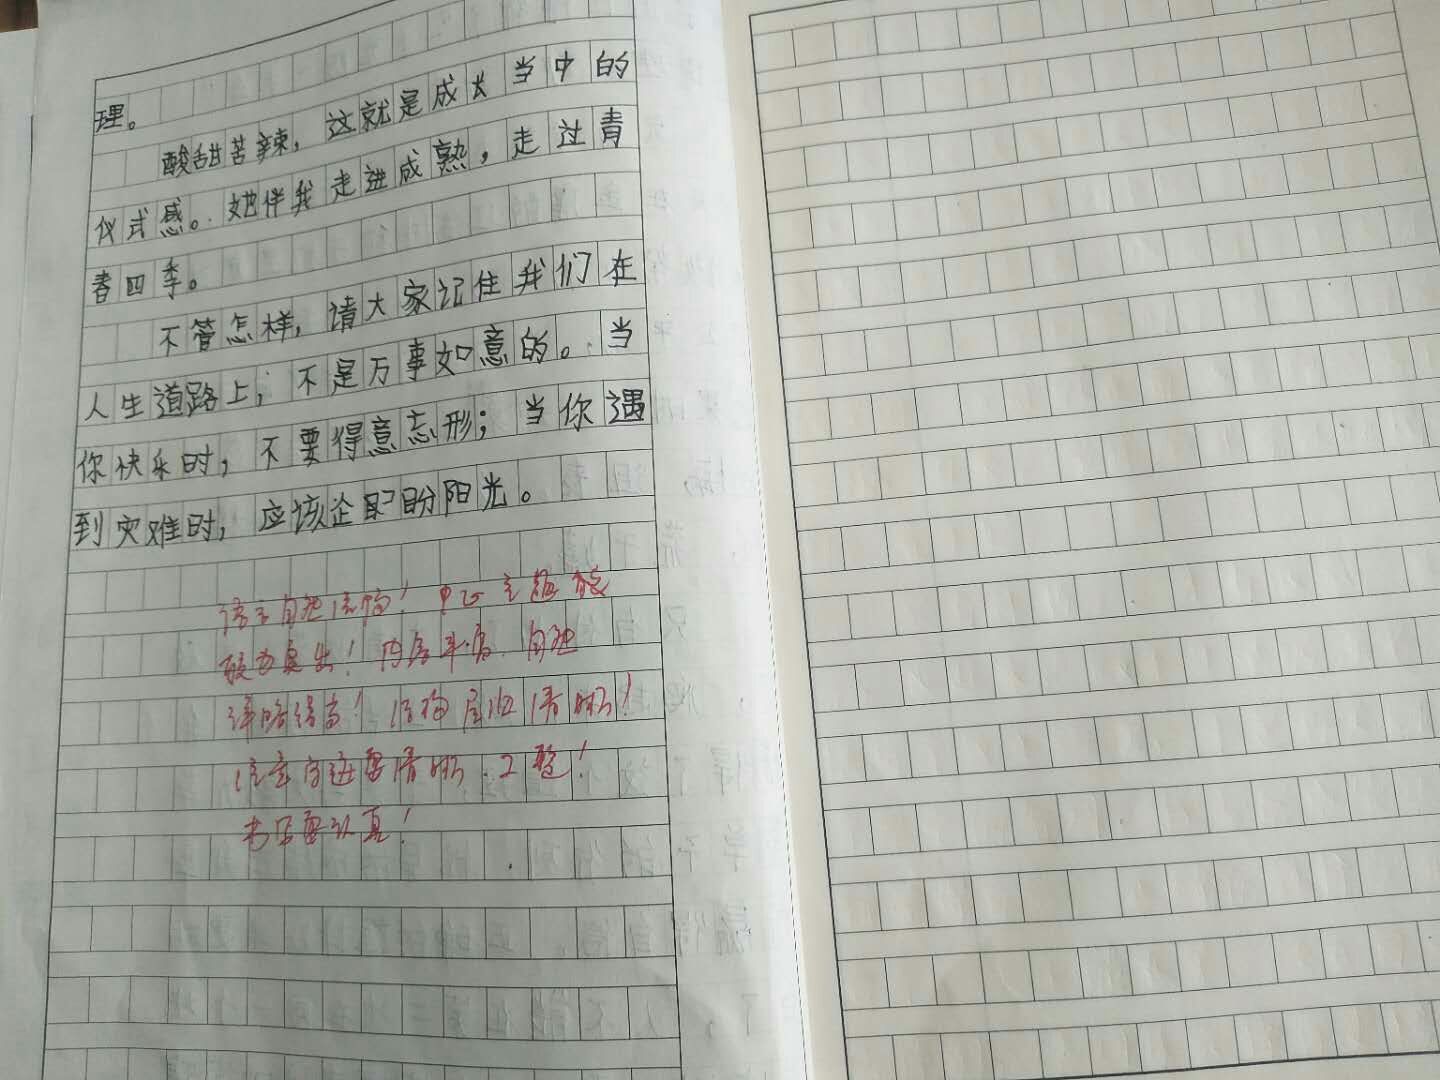 理。
酸甜苦辣，这就是成长当中的
仪式感。她伴我走进成熟，走过青
春四季。
不管怎样，请大家记住我们在
人生道路上，不是万事如意的。当
你快乐时，不要得意忘形；当你遇
到灾难时，应该企盼阳光。
语言自然流畅！中心主题
突出！内容丰富，自然
详略得当！结构层次清晰！
注意字迹要清晰、工整！
书写要认真！